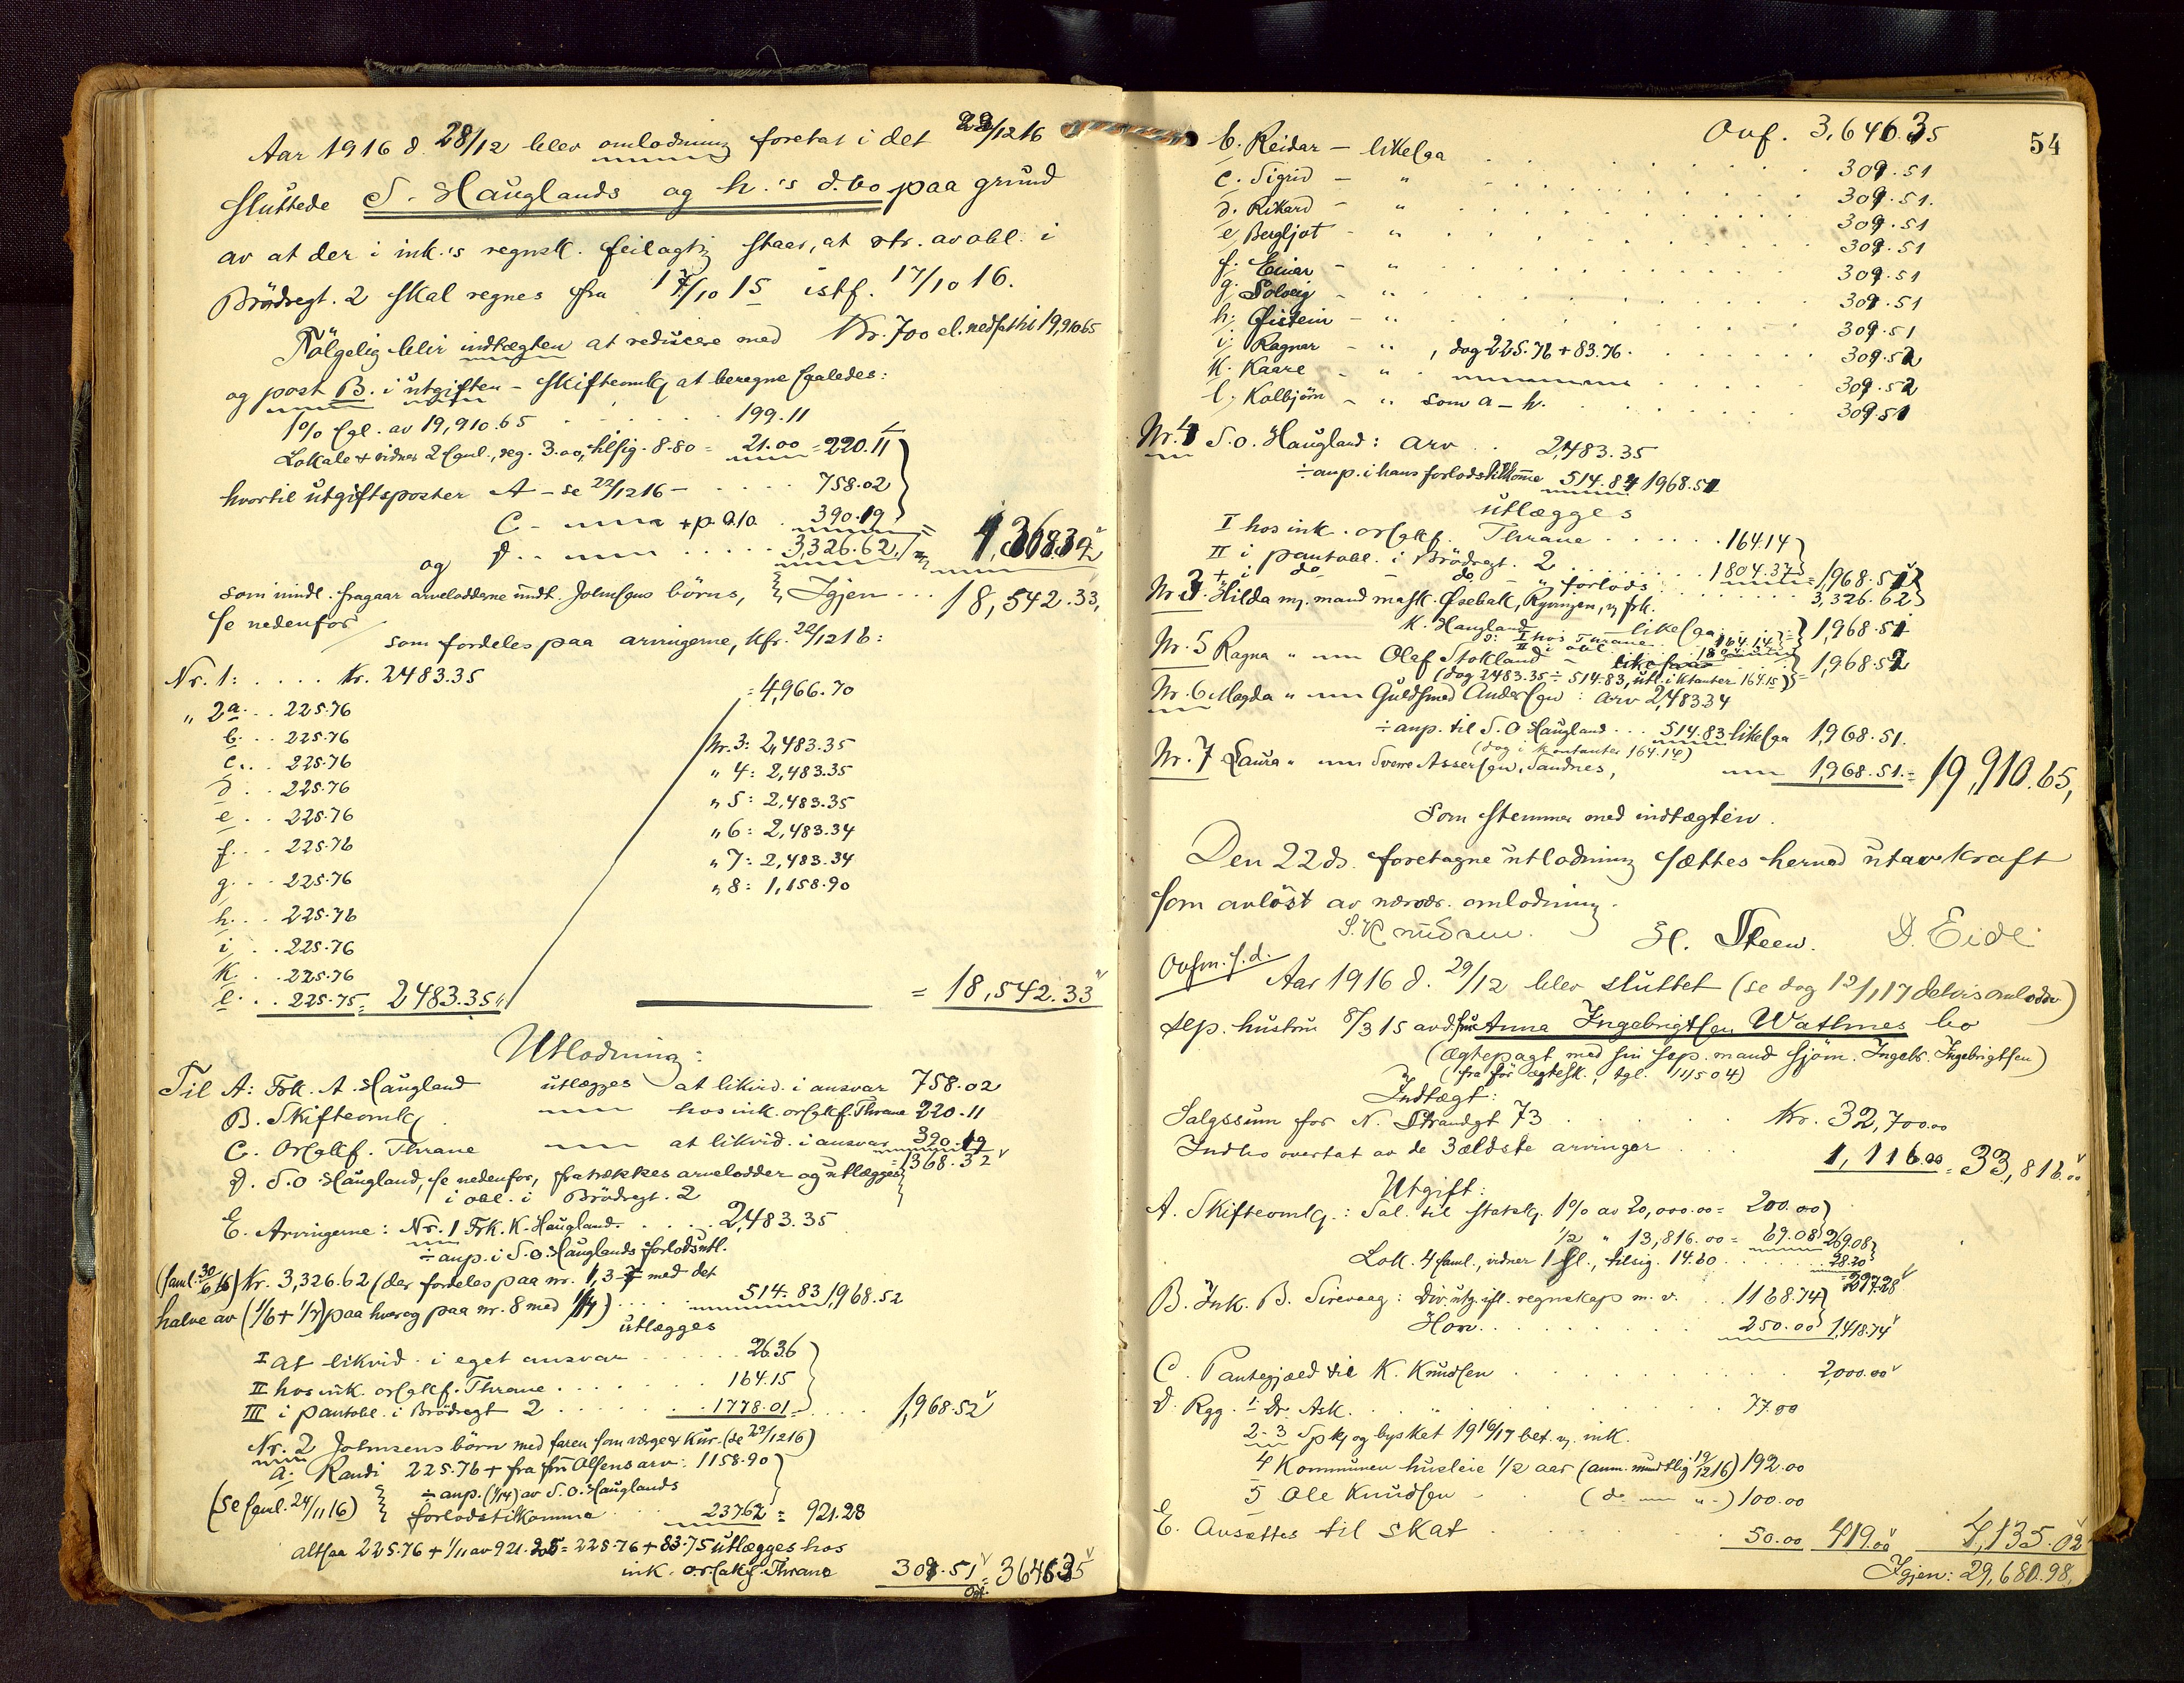 Aar 1916 d. 28/12 blev omlodning foretat i det 22/12 16
sluttede S. Hauglands og h.'s d.bo paa grund
av at der i ink.'s regnsk. feilagtig staar, at rtr. av obl. i
Brödregt. 2 skal regnes fra 17/10 15 istf. 17/10 16.
Fölgelig blir indtægten at reducere med Kr. 700 el. nedsat til 19,910.65
og post B. i utgiften - skifteomk. at beregne saaledes:
1% sgl. av 19,910.65 . . . 199.11
Lokale + vidner 2 saml., reg. 3.00, tilsig. 8.80 = 21.00 = 220.11
hvortil utgiftsposter A - se 22/12 16 - . . . . 758.02
C - + p. a.la. . 390.19
og D . . . . . 3,326.62 = 1,368.32
som imidl. fragaar arvelodderne undt. Johnsens börns, Igjen . . . 18,542.33,
se nedenfor
som fordeles paa arvingerne, kfr. 22/12 16:
Nr. 1: . . . . Kr. 2483.35
= 4,966.70
" 2 a . . . 225.76
b . . . 225.76
c . . . 225.76
d . . . 225.76
e . . . 225.76
f . . . 225.76
g . . . 225.76
h . . . 225.76
i . . . 225.76
k . . . 225.76
l . . . 225.75 = 2483.35
Nr. 3: 2,483.35
" 4: 2,483.35
" 5: 2,483.35
" 6: 2,483.34
" 7: 2,483.34
" 8: 1,158.90
= 18,542.33
Utlodning:
Til A: Frk. A. Haugland utlægges at likvid. i ansvar 758.02
B. Skifteomk. hos ink. orsakf. Thrane 220.11
C. Orsakf. Thrane at likvid. i ansvar 390.19
= 1368.32
D. S.O. Haugland, se nedenfor, fratrækkes arvelodder og utlægges
i obl. i Brödregt. 2
E. Arvingerne: Nr. 1 Frk. K. Haugland . . . . 2,483.35
÷ anp. i S.O. Hauglands forlodsutl.
(saml. 30/6 16) Kr. 3,326.62 (der fordeles paa nr. 1, 3-7 med det
halve av (1/6 + 1/7) paa hver og paa nr. 8 med 1/14) . . . . 514.83 1,968.52
utlægges
I at likvid. i eget ansvar . . . . . 26.36
II hos ink. orsakf. Thrane . . . . . 164.15
III i pantobl. i Brödregt 2 . . . . . 1778.01 = . . . . 1,968.52
Nr. 2 Johnsens börn med faren som værge & kur. (se 22/12 16)
a. Randi 225.76 + fra fru Olsens arv: 1158.90
(se saml. 24/11 16) ÷ anp. (1/14) av S.O. Hauglands
forlodstilkomme . . 237.62 = 921.28
altsaa 225.76 + 1/11 av 921.28 = 225.76 + 83.75 utlægges hos
ink. orsakf. Thrane 309.51 = 3646.35
Ovf.
Ovf. 3,646.35
54
b. Reidar - likesaa . . . 309.51
c. Sigrid - " . . . 309.51.
d. Rikard - " . . . 309.51
e, Bergljot - " . . . 309.51
f. Einar - " . . . 309.51
g. Solveig - " . . . 309.51
h. Øistein - " . . . 309.51
i. Ragnar - " , dog 225.76 + 83.76 . . . 309.52
k. Kaare - " . . . 309.52
l. Kolbjörn - " som a - h. . . . 309.51
Nr. 4 S.O. Haugland: arv . . 2,483.35
÷ anp. i hans forlodstilkomme 514.84 1968.51
utlægges
I hos ink. orsakf. Thrane . . . . . 164.14
II i pantobl. i Brödregt. 2 . . . . . 1804.37 = 1,968.51
+ i do - do - " forlods . . . . 3,326.62
Nr. 3. Hilda m. mand mask. Øsebak, Ryvingen, v. frk.
K. Haugland likesaa . . . 1,968.51
o: I hos Thrane 164.14
II i obl. 1804.37
Nr. 5 Ragna " Olaf Stokland - 1,968.52
(dog 2483.35 ÷ 514.83, utl. i kontanter 164.15)
Nr. 6 Magda " Guldsmed Andersen: arv 2,483.34
÷ anp. til S.O. Haugland . . . 514.83 likesaa 1,968.51.
(dog i kontanter 164.14)
Nr. 7 Laura " Sverre Assersen, Sandnes, 1,968.51. = 19,910.65,
som stemmer med indtægten.
Den 22 ds. foretagne utlodning sættes herved ut av kraft
som avlöst av nærvær. omlodning.
S. Knudsen. H. Steen. D. Eide
Ovfm. s.d.
Aar 1916 d. 29/12 blev sluttet (se dog 12/1 17 delvis omlodn)
sep. hustru 8/3 15 avd. fru Anna Ingebrigtsen Wathnes bo
(ægtepagt med sin sep. mand sjöm. Ingebr. Ingebrigtsen)
(fra för ægtesk., tgl. 11/5 04)
Indtægt:
Salgssum for N. Strandgt 73 . . . . . Kr. 32,700.00
Indbo overtat av de 3 ældste arvinger . . . 1,116.00 = 33,816.00
Utgift:
A. Skifteomk.: Sal. til statsk. 1% av 20,000.00 = 200.00
1/2 " 13,816.00 = 69.08 269.08
Lok. 4 saml., vidner 1 sl., tilsig. 14.60 . . . . . 28.20
= 297.28
B. Ink. B. Sirevaag: Div. utg. ifl. regnskap m. v. . . 1168.74
Hon. . . . . 250.00 1,418.74
C. Pantegjæld til K. Knudsen . . . . . 2,000.00
D. Rgg. 1 Dr. Ask. . . . . . 77.00
2-3 Spkj og byskat 1916/17 bet. v. ink.
4 Kommunen husleie 1/2 aar (anm. mundtlig 19/12 16) 192.00
5 Ole Knudsen . . (do " ) 100.00
E. Avsættes til skat . . . . . 50.00 419.00 4,135.02
Igjen: 29,680.98,